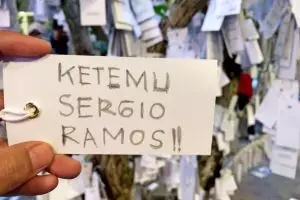 KETEMU
SERGIO
RAMOS!!